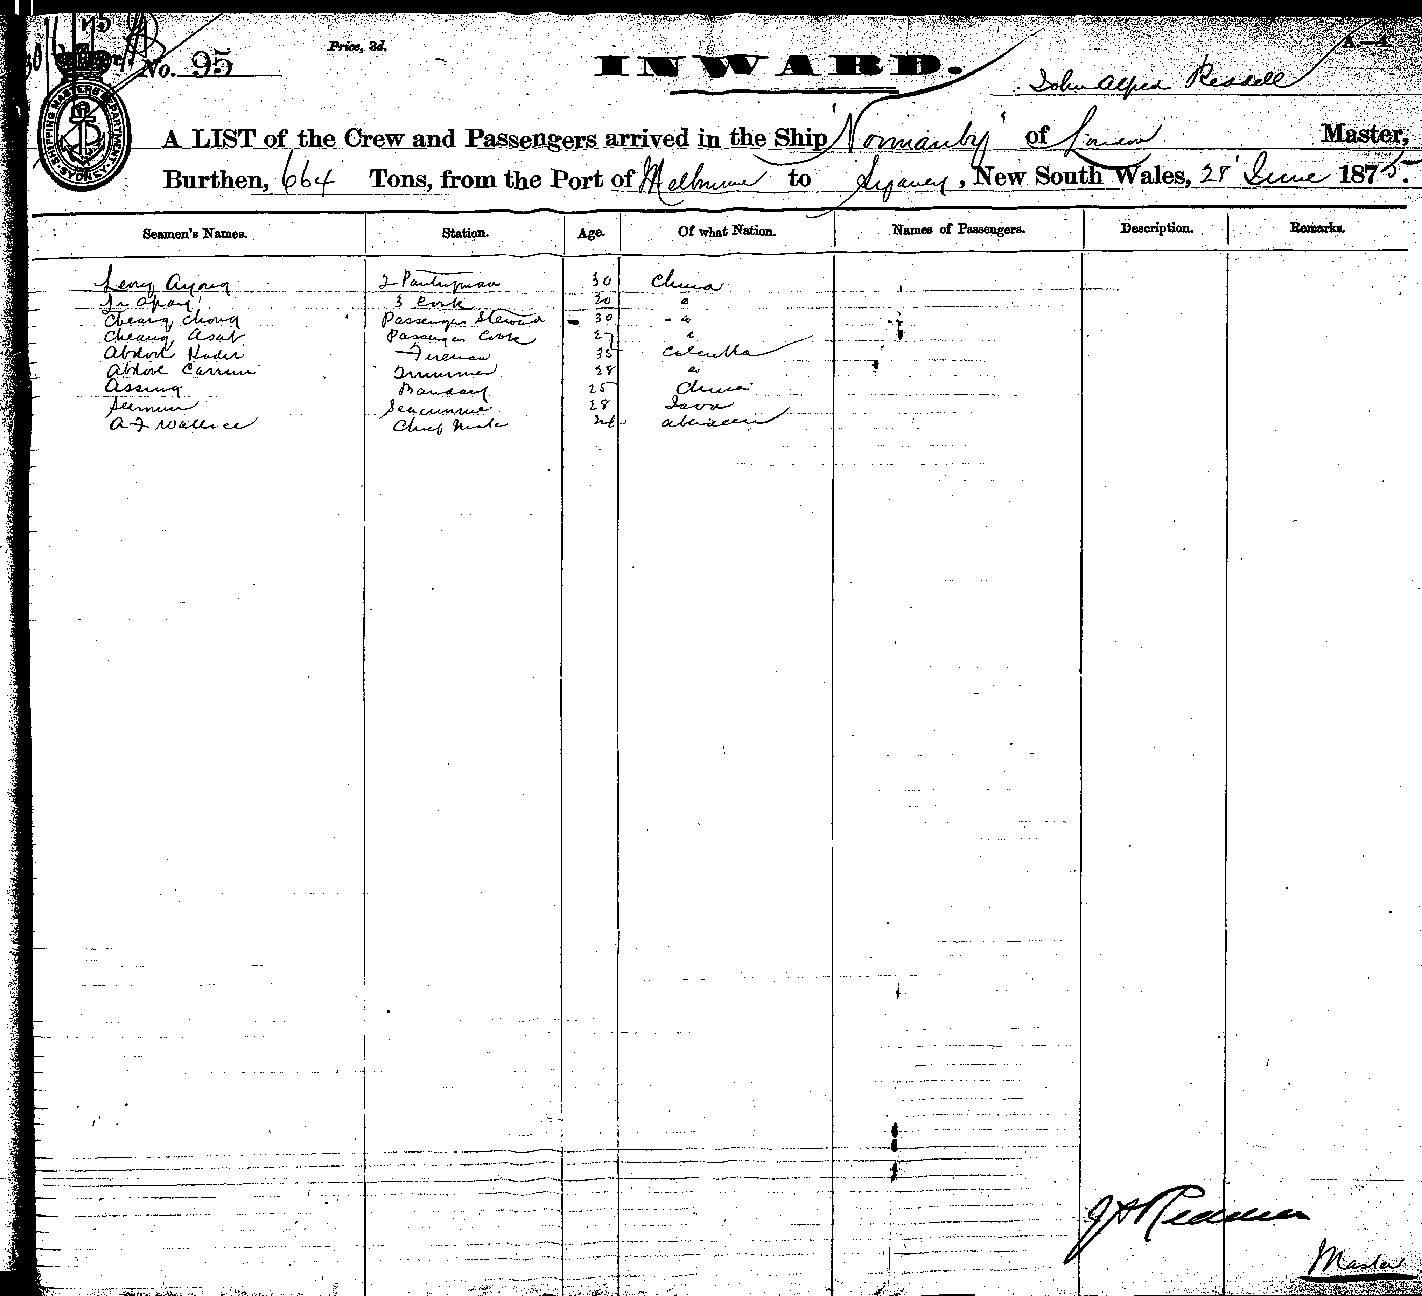 No. 95
Price, 3d.
INWARD.
John Alfred
A LIST of the Crew and Passengers arrived in the Ship "Normanby" of London Master,
Burthen, 664 Tons, from the Port of Melbourne to Sydney, New South Wales, 28 June 1875.
Seamen's Names. Station. Age. Of what Nation. Names of Passengers. Description. Remarks.
2 Pantryman 30 China
3 Cook 30 "
Cheang Chong Passengers Steward 30 "
Cheang Asat Passengers Cook 27 "
Abdool Kader Fireman 35 Calcutta
Abdool Carrim Trimmer 28 "
Assing 25 China
28 Java
A F Wallace Chief Mate Aberdeen
Master